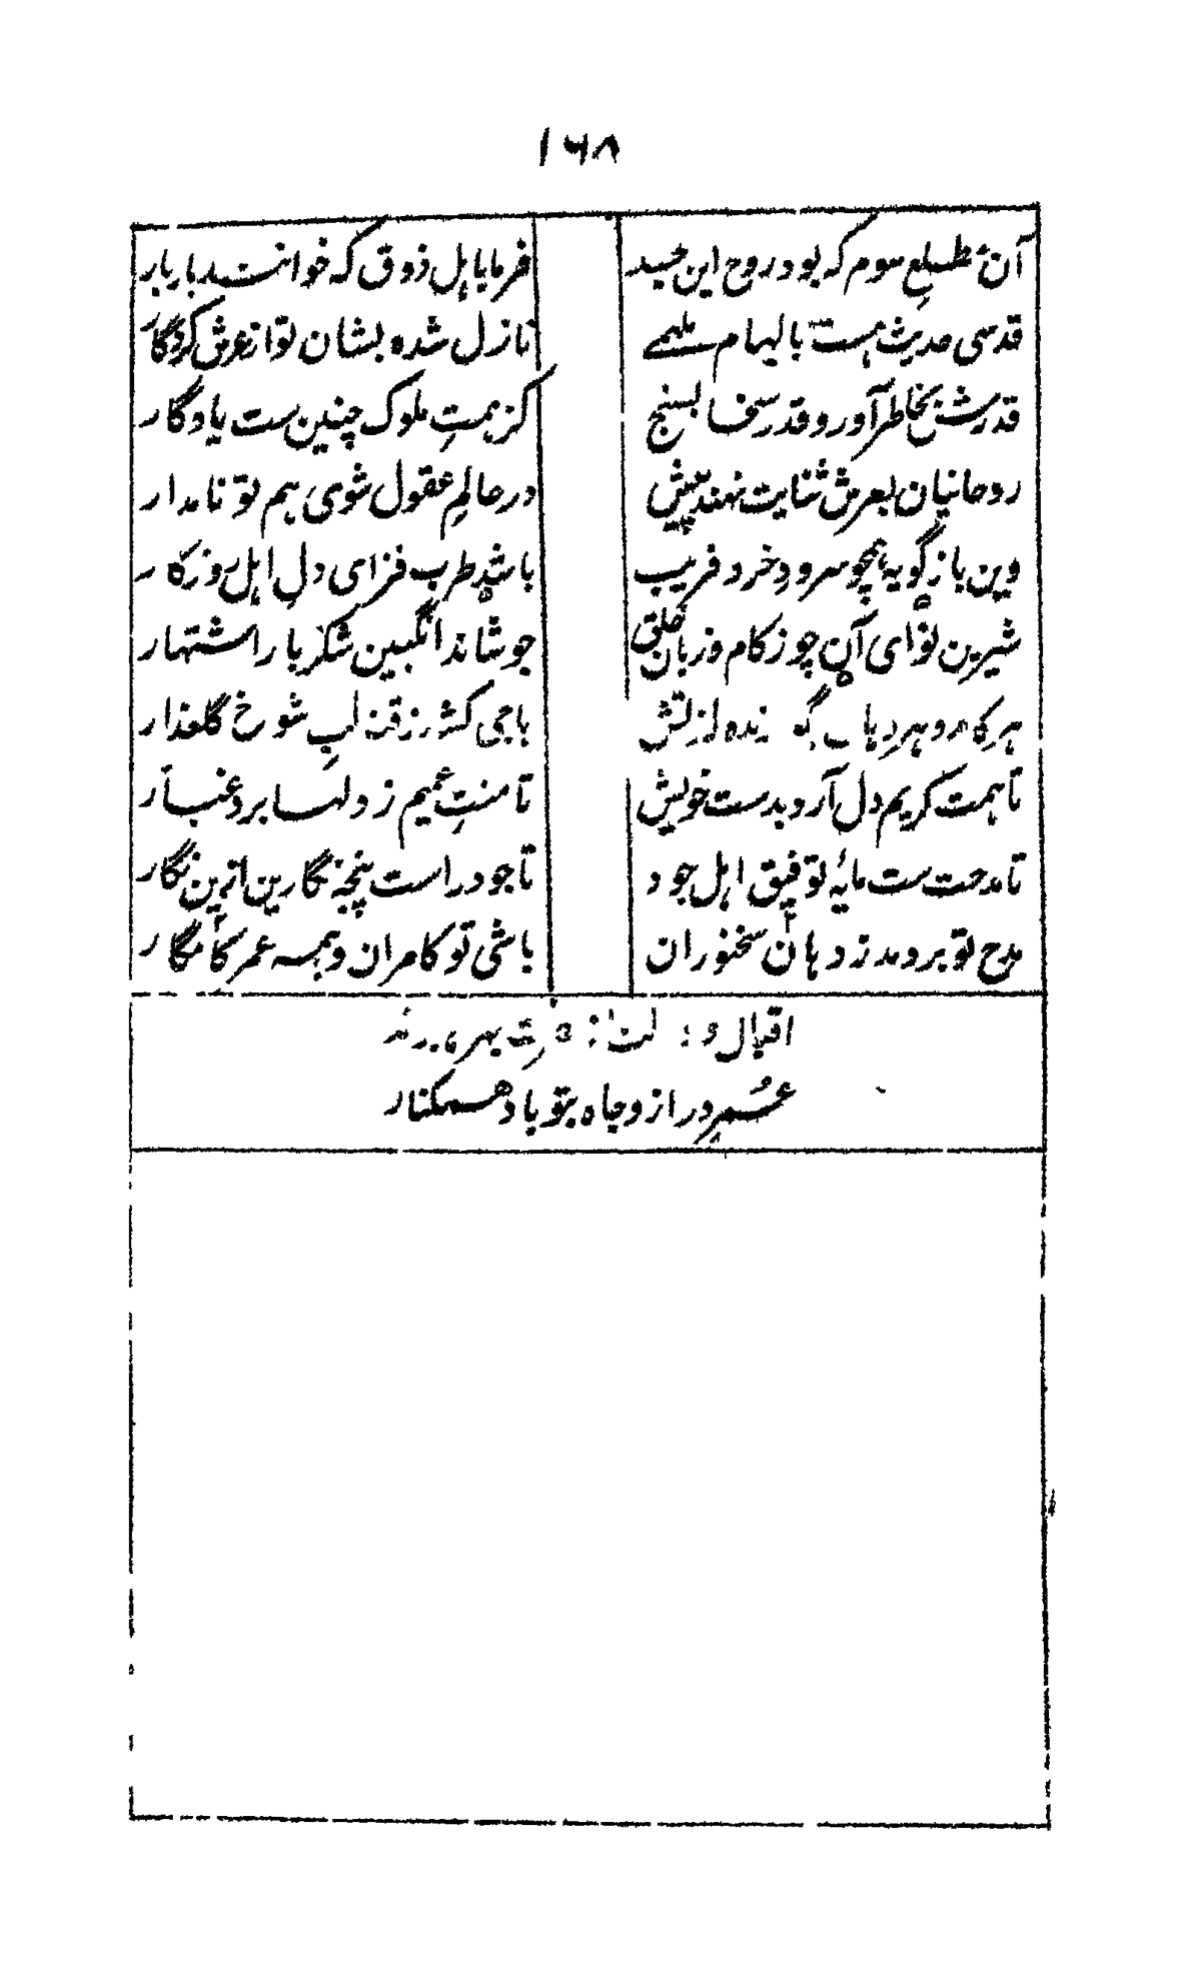 ۱۶۸
آن مطلع سوم که بود روح این جسد
فرما باہل ذوق که خوانند بار بار
قدسی حدیث ہست بالہام ملہمے
نازل شدہ بشان تو از عرش کردگار
قدرش بخاطر آور و قدر سخا بسنج
کز ہمتِ ملوک چنین ست یادگار
روحانیان بعرش ثنایت نہند پیش
در عالمِ عقول شوی ہم تو نامدار
وین باز گویہ ہمچو سرودِ خرد فریب
باشد طرب فزای دلِ اہل روزگار
شیرین نوای آن چو ز کام و زبان خلق
جوشاند انگبین شکر بار اشتہار
ہر کام و ہر دہان
لبِ شوخ گلعذار
تا ہمت کریم دل آرد بدست خویش
تا منتِ عمیم ز دلہا برد غبار
تا مدحت ست مایۂ توفیق اہل جود
تا جود راست پنجہ نگارین ازین نگار
مدح تو بر دمد ز دہان سخنوران
باشی تو کامران و ہمہ عمر کامگار
اقبال و
عمرِ دراز و جاہ بتو باد ہمکنار